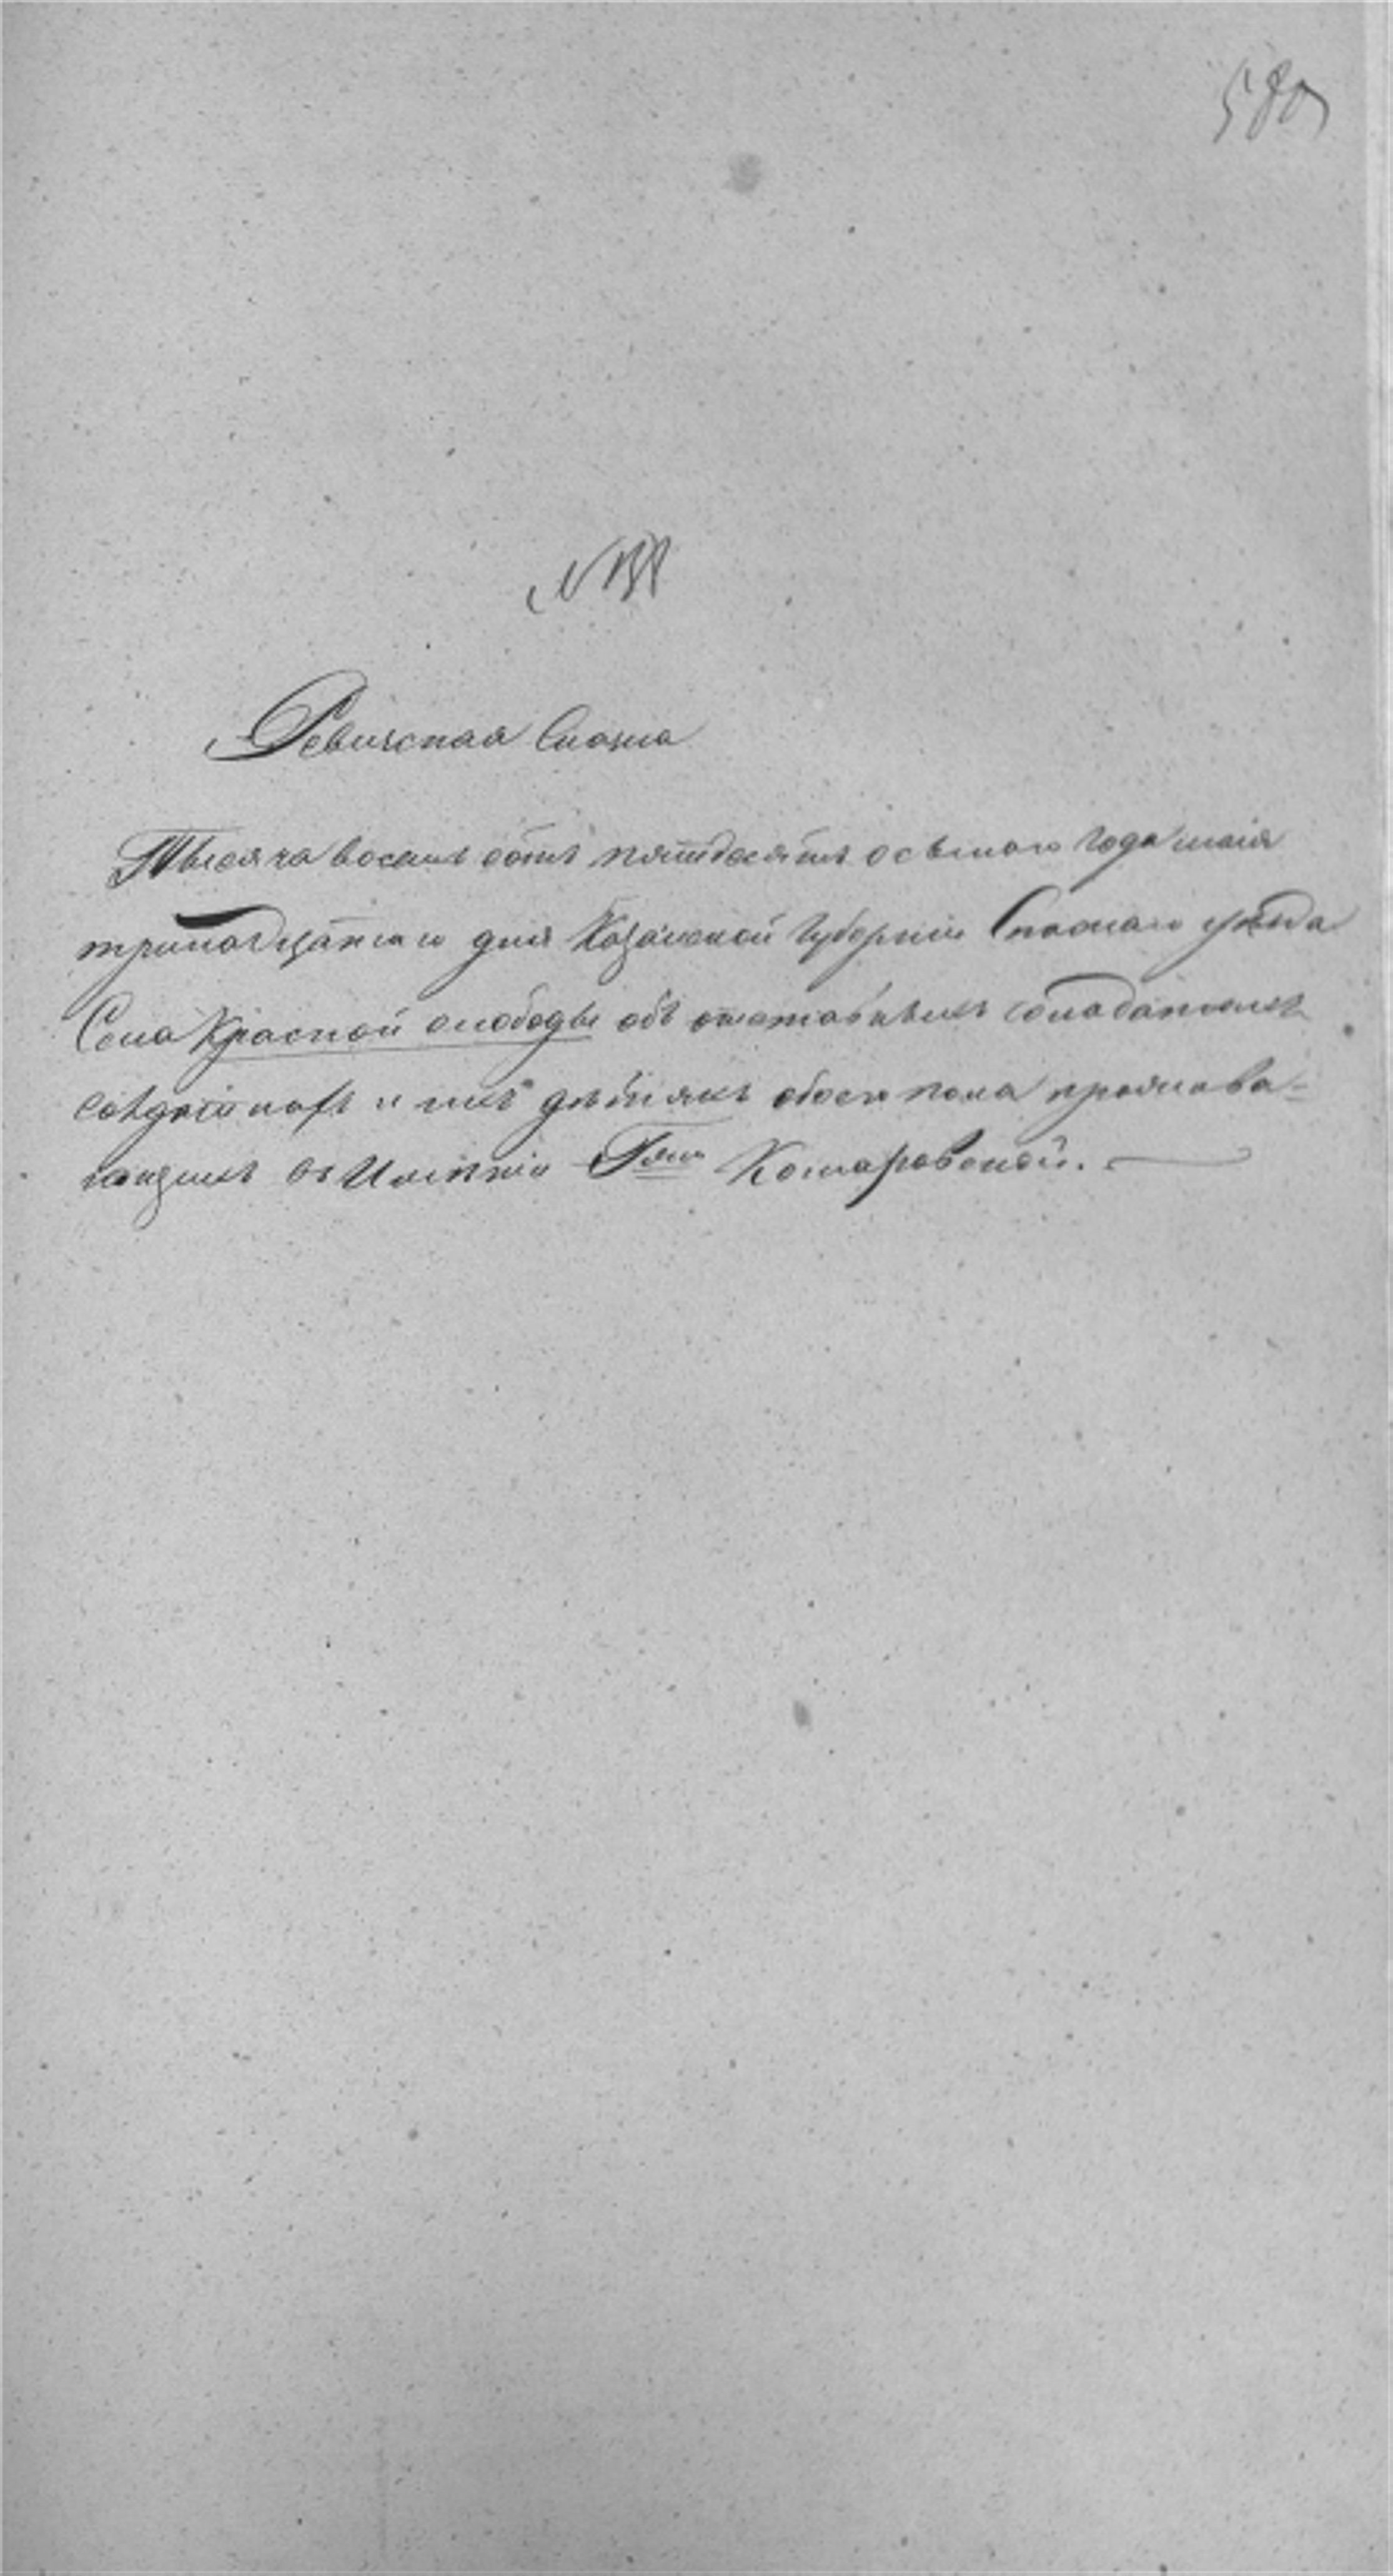 580
Ревижская Сказка
Тысяча восемь сотъ пятьдесятъ осьмаго года маія
тринадцатаго дня Казанской Губерніи Спаскаго уѣзда
Села Красной слободы объ отставныхъ солдатахъ
солдаткахъ и ихъ дѣтяхъ обоего пола прожива-
ющихъ въ Имѣніи Гжи Комаровской.